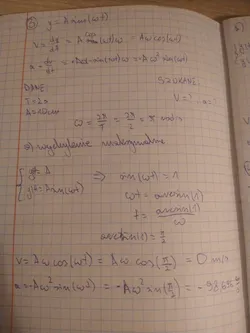 y = A sin(ωt)
V = dy/dt = A cos(ωt) ω = Aω cos(ωt)
a = = -Aω sin(ωt) ω = -Aω² sin(ωt)
DANE
SZUKANE:
T = 2s
V = ? a = ?
ω = 2π/T = 2π/2 = π rad/s
wychylenie maksymalne
y = A
y = A sin(ωt)
⇒ sin(ωt) = 1
ωt = arcsin(1)
t = arcsin(1)/ω
arcsin(1) = π/2
V = Aω cos(ωt) = Aω cos(π/2) = 0 m/s
a = -Aω² sin(ωt) = -Aω² sin(π/2) =